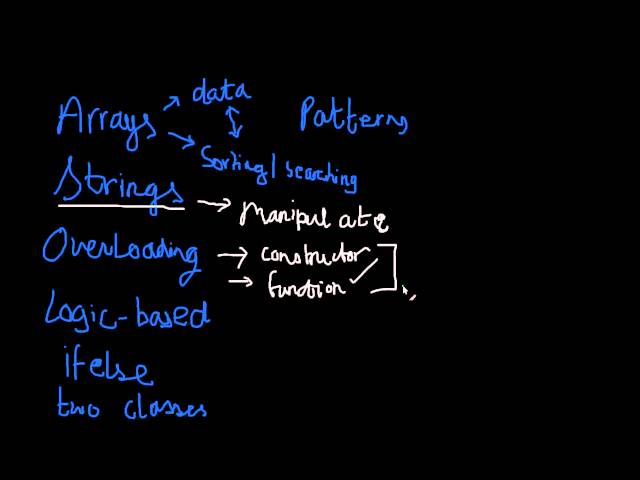 Arrays
data
Patterns
Sorting/searching
Strings
Manipulate
Overloading
constructor
function
Logic-based
if else
two classes